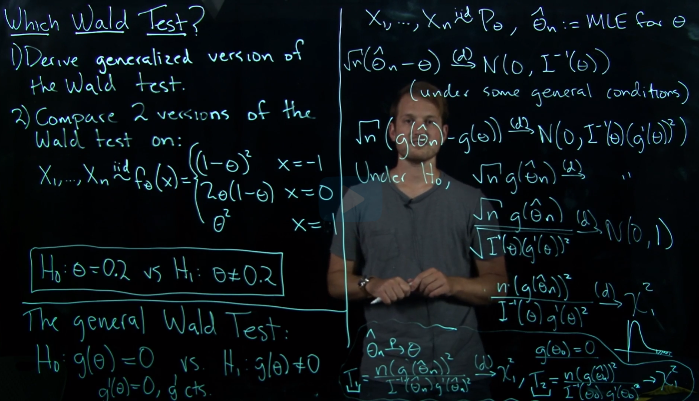 Which Wald Test?
1) Derive generalized version of
the Wald test.
2) Compare 2 versions of the
Wald test on:
X₁,...,Xₙ iid~ f_θ(x) = { (1-θ)² x=-1
2θ(1-θ) x=0
θ² x=1
H₀: θ=0.2 vs H₁: θ≠0.2
The general Wald Test:
H₀: g(θ)=0 vs. H₁: g(θ)≠0
g'(θ)=0, g cts.
X₁,...,Xₙ iid~ P_θ, θ̂ₙ := MLE for θ
√n(θ̂ₙ-θ) (d)→ N(0, I⁻¹(θ))
(under some general conditions)
√n(g(θ̂ₙ)-g(θ)) (d)→ N(0, I⁻¹(θ)(g'(θ))²)
Under H₀, √n g(θ̂ₙ) (d)→ "
√n g(θ̂ₙ) / √(I⁻¹(θ)(g'(θ))²) (d)→ N(0,1)
n(g(θ̂ₙ))² / I⁻¹(θ) g'(θ)² (d)→ χ²₁
θ̂ₙ P→ θ
g(θ₀)=0
T₁ = n(g(θ̂ₙ))² / I⁻¹(θ̂ₙ) g'(θ̂ₙ)² (d)→ χ²₁, T₂ = n(g(θ̂ₙ))² / I⁻¹(θ₀) g'(θ₀)² → χ²₁